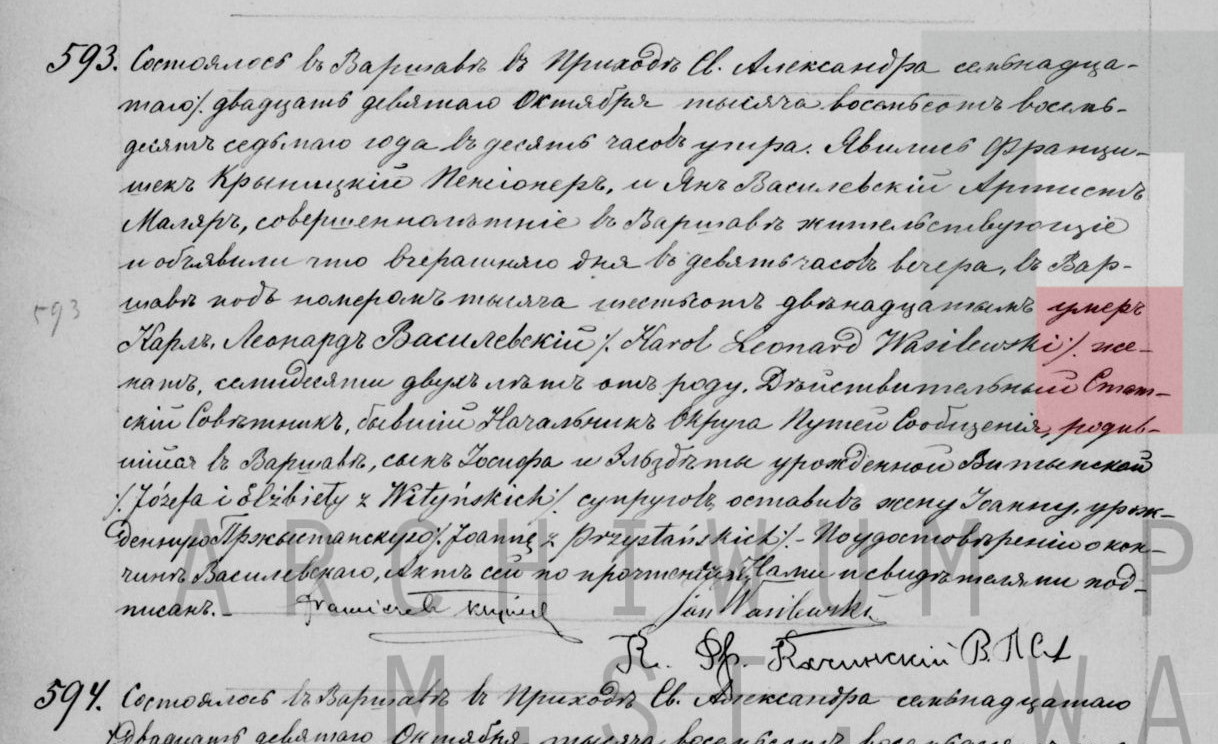 593. Состоялось въ Варшавѣ въ Приходѣ Св. Александра семьнадца-
таго /. двадцать девятаго Октября тысяча восемьсотъ восемь-
десятъ седьмаго года въ десять часовъ утра. Явились Франци-
шекъ Пенсіонеръ, и Янъ Василевскій Артистъ
Маляръ, совершеннолѣтніе въ Варшавѣ жительствующіе
и объявили что вчерашняго дня въ девять часовъ вечера, въ Вар-
шавѣ подъ номеромъ тысяча шестьсотъ двѣнадцатымъ умеръ
593
Карлъ, Леонардъ Василевскій /. Karol Leonard Wasilewski /. же-
натъ, семидесяти двухъ лѣтъ отъ роду, Дѣйствительный Стат-
скій Совѣтникъ, бывшій Начальникъ Округа Путей Сообщенія, родив-
шійся въ Варшавѣ, сынъ Іосифа и Эльзбѣты урожденной Витынской
/. Józefa i Elżbiety z Wityńskich /. супруговъ, оставивъ жену Іоанну, урож-
денную Пржыстанскую /. Joannę z Przystańskich /. - По удостовѣреніи о кон-
чинѣ Василевскаго, Актъ сей по прочтеніи, Нами и свидѣтелями под-
писанъ. -
Jan Wasilewski
К. Фр.
594. Состоялось въ Варшавѣ въ Приходѣ Св. Александра семьнадцатаго
/. Двадцать девятаго Октября тысяча восемьсотъ
ARCHIWUM P
M.ST. WA